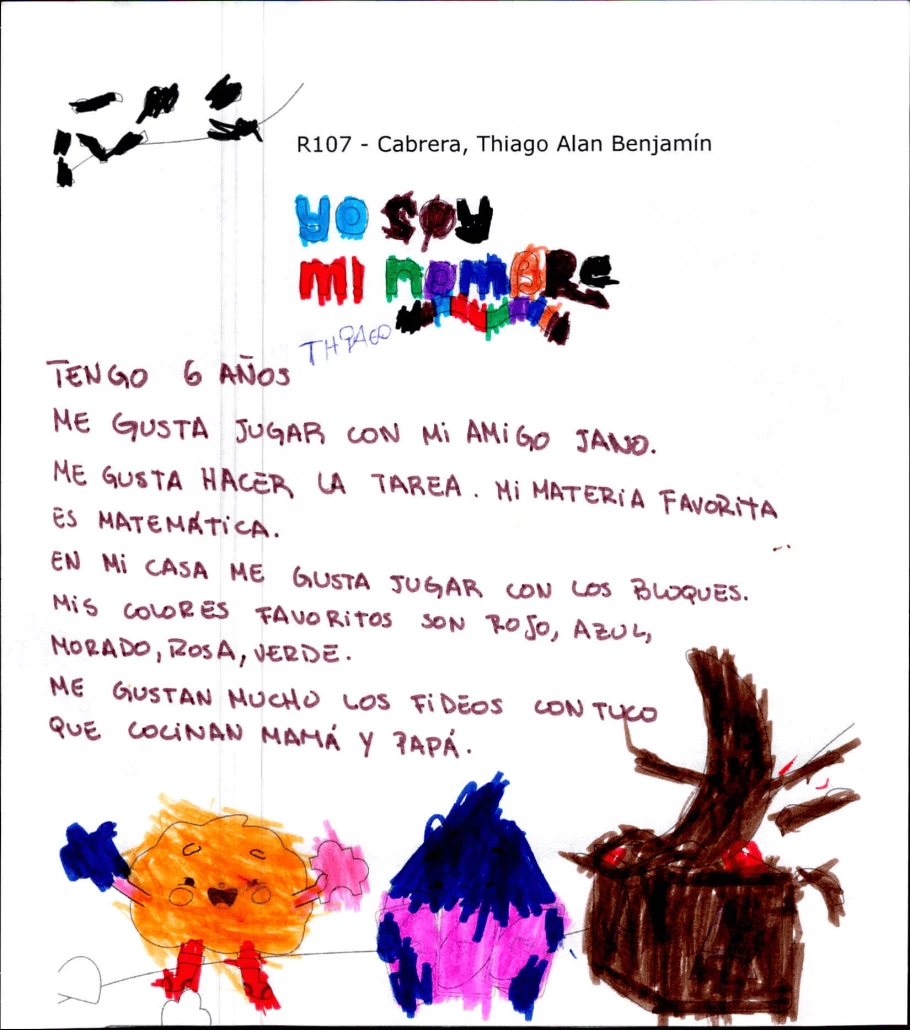 R107 - Cabrera, Thiago Alan Benjamín
YO SOY
MI NOMBRE
THIAGO
TENGO 6 AÑOS
ME GUSTA JUGAR CON MI AMIGO JANO.
ME GUSTA HACER LA TAREA. MI MATERIA FAVORITA
ES MATEMÁTICA.
EN MI CASA ME GUSTA JUGAR CON LOS BLOQUES.
MIS COLORES FAVORITOS SON ROJO, AZUL,
MORADO, ROSA, VERDE.
ME GUSTAN MUCHO LOS FIDEOS CON TUCO
QUE COCINAN MAMÁ Y PAPÁ.